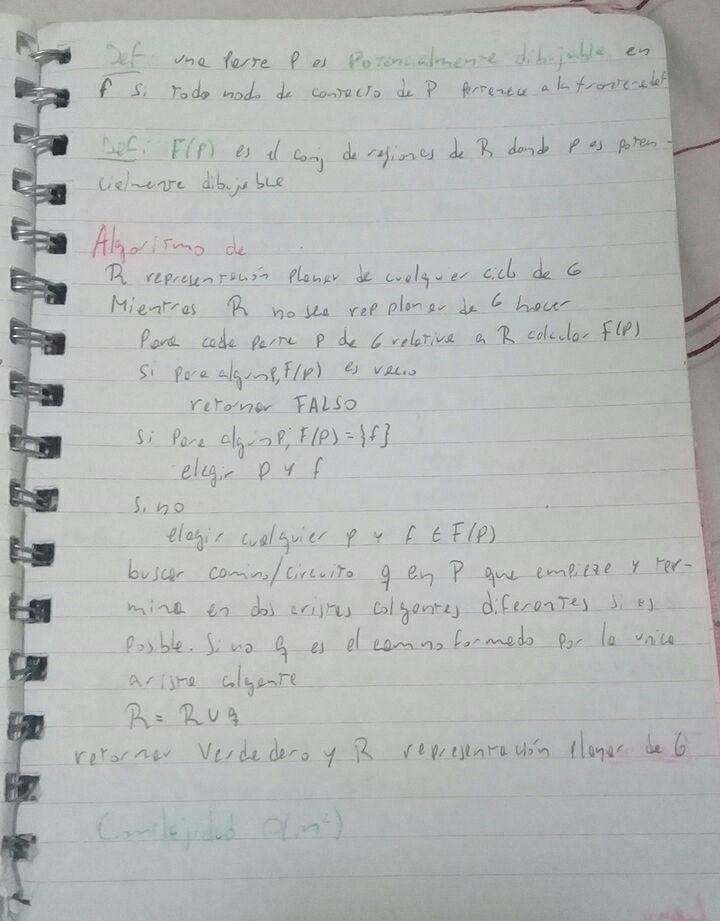 Def una parte P es Potencialmente dibujable en
f si todo nodo de contacto de P pertenece a la frontera de f
Def: F(P) es el conj de regiones de R donde P es poten-
cialmente dibujable
Algoritmo de
R representación planar de cualquier ciclo de G
Mientras R no sea rep planar de G hacer
Para cada parte P de G relativa a R calcular F(P)
Si para algun P, F(P) es vacio
retornar FALSO
Si Para algun P, F(P) = {f}
elegir P y f
Si no
elegir cualquier P y f ∈ F(P)
buscar camino/circuito q en P que empieze y ter-
mine en dos aristas colgantes diferentes si es
Posible. Si no q es el camino formado por la unica
arista colgante
R = R ∪ q
retornar Verdadero y R representación planar de G
Complejidad O(n²)